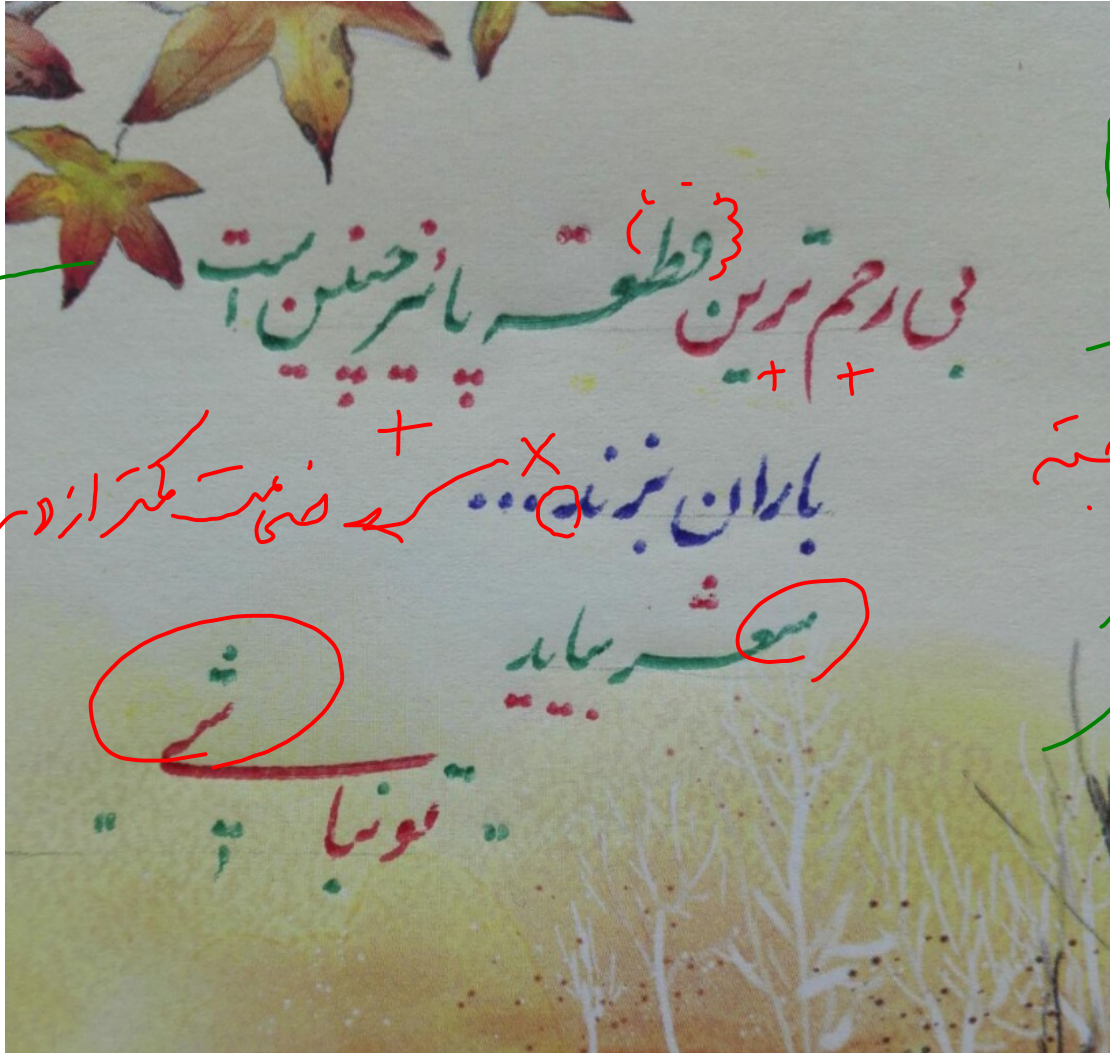 بی رحم ترین قطعه پائیز چنین است
باران بزند...
شعر بیاید
تو نباشی
ضخیمت کمتر از د